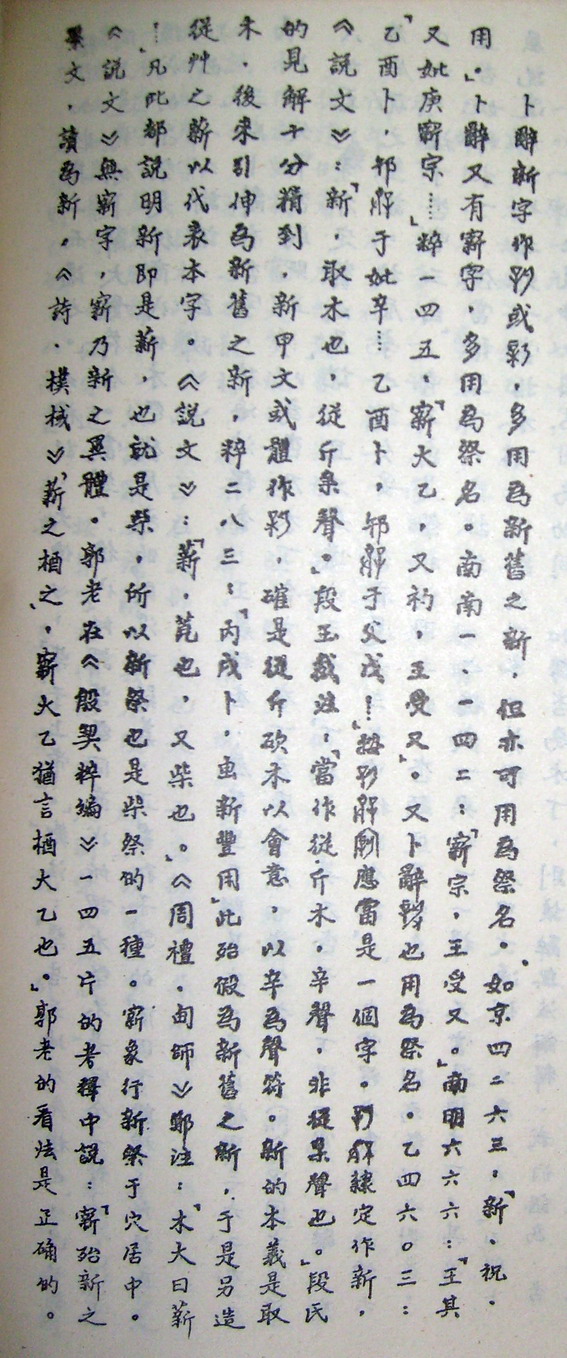 卜辭新字作或，多用為新舊之新，但亦可用為祭名。如京四二六三：「新、祝。
用」卜辭又有寴字，多用為祭名。南南一、一四二「寴宗，王受又。」南明六六六：「王其
又妣庚寴宗……」粹一四五：「寴大乙，又礿，王受又」。又卜辭也用為祭名。乙四六〇三：
「乙酉卜，于妣辛… 乙酉卜，于父戊……」應當是一個字。隸定作新，
《說文》：「新，取木也，從斤亲聲。」段玉裁注：「當作從斤木，辛聲，非從亲聲也。」段氏
的見解十分精到，新甲文或體作，確是從斤砍木以會意，以辛為聲符。新的本義是取
木，後來引伸為新舊之新，粹二八三：「丙戌卜，新豐用」此殆假為新舊之新，于是另造
從艸之薪以代表本字。《說文》：「薪，蕘也，又柴也。」《周禮·甸師》鄭注：「木大曰薪
…」凡此都說明新即是薪，也就是柴，所以新祭也是柴祭的一種。寴象行新祭于穴居中。
《說文》無寴字，寴乃新之異體。郭老在《殷契粹編》一四五片的考釋中說：「寴殆新之
異文，讀為新，《詩·棫》『薪之槱之』，寴大乙猶言槱大乙也。」郭老的看法是正确的。